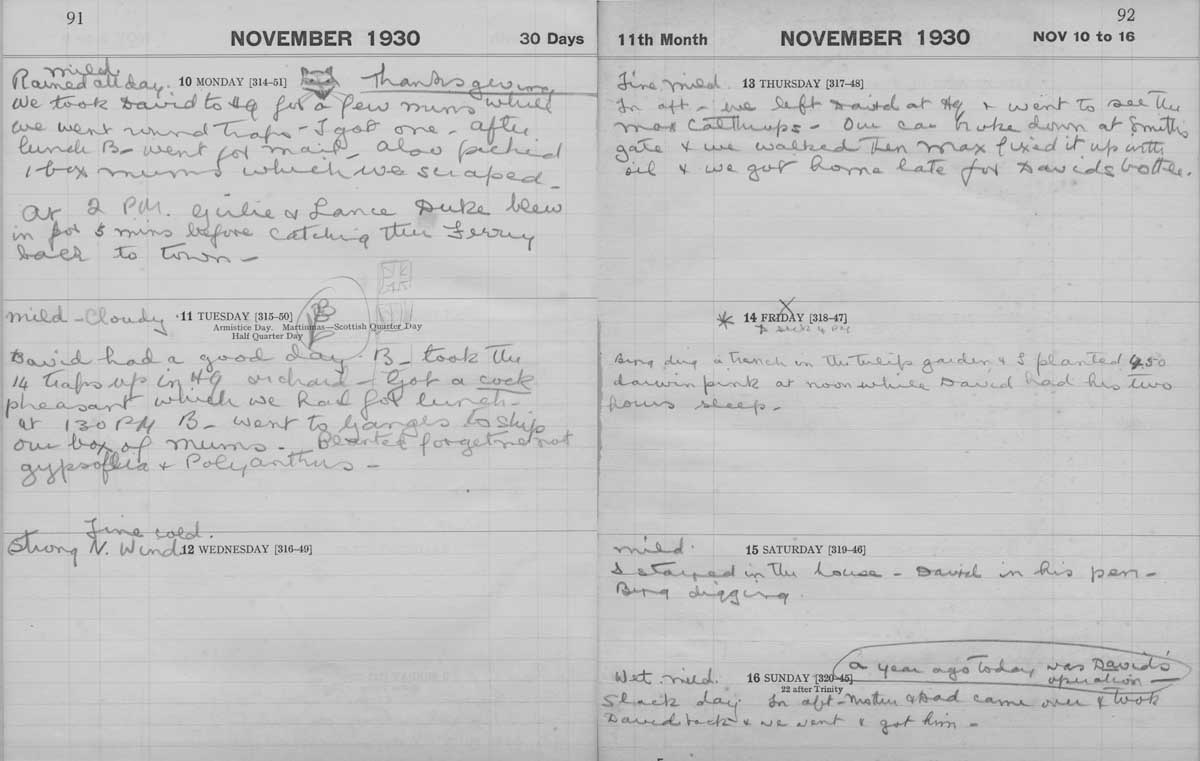 91
NOVEMBER 1930
30 Days
mild
Rained all day.
10 MONDAY [314–51]
Thanksgiving
we took David to HQ for a few mins while
we went round traps - I got one - after
lunch B- went for mail - also picked
1 box mums which we scraped -
At 2 P.M. & Lance Duke blew
in for 5 mins before catching the Ferry
back to town -
mild - Cloudy
11 TUESDAY [315–50]
Armistice Day. Martinmas—Scottish Quarter Day
Half Quarter Day
David had a good day B- took the
14 traps up in HQ orchard - Got a cock
pheasant which we had for lunch -
at 1 30 PM B- went to Ganges to ship
our box of mums - forgetmenot
& Polyanthus -
Fine cold.
Strong N. Wind
12 WEDNESDAY [316–49]
92
11th Month
NOVEMBER 1930
NOV 10 to 16
Fine mild.
13 THURSDAY [317–48]
In aft - we left David at HQ & went to see the
Max - Our car broke down at Smiths
gate & we walked then Max fixed it up with
oil & we got home late for Davids bottle.
14 FRIDAY [318–47]
Bing dug a trench in the tulip garden & I planted 450
darwin pink at noon while David had his two
hours sleep -
mild.
15 SATURDAY [319–46]
I stayed in the house - David in his pen -
Bing digging
a year ago today was David's
operation -
Wet. mild.
16 SUNDAY [320–45]
22 after Trinity
Slack day In aft - Mother & Dad came over & took
David back & we went & got him -